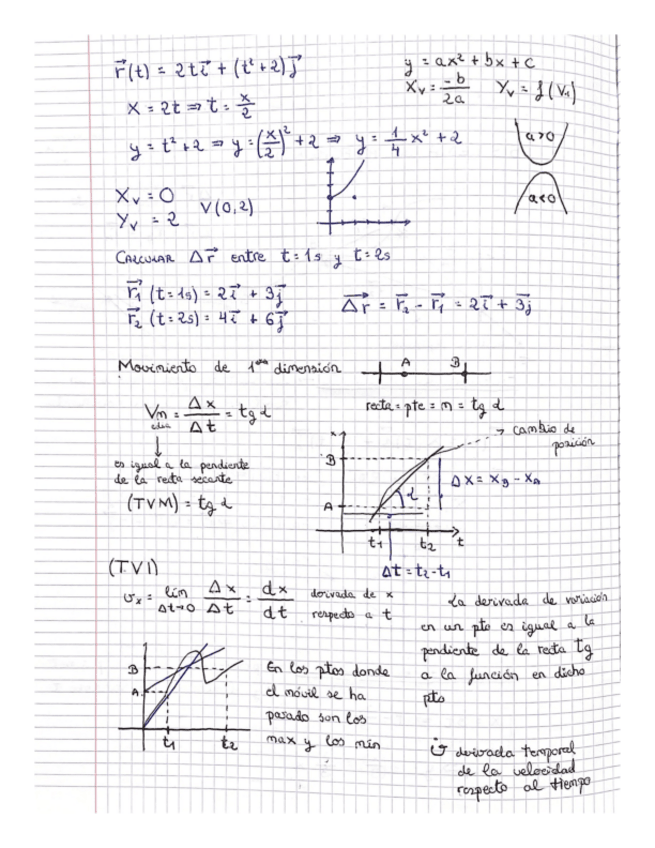 r⃗(t) = 2t i⃗ + (t² + 2) j⃗
y = ax² + bx + c
X = 2t ⇒ t = x/2
Xv = -b/2a   Yv = f(Vx)
y = t² + 2 ⇒ y = (x/2)² + 2 ⇒ y = 1/4 x² + 2
a>0
a<0
Xv = 0
Yv = 2   V(0,2)
CALCULAR Δr⃗ entre t = 1s y t = 2s
r⃗₁ (t = 1s) = 2i⃗ + 3j⃗
r⃗₂ (t = 2s) = 4i⃗ + 6j⃗
Δr⃗ = r⃗₂ - r⃗₁ = 2i⃗ + 3j⃗
Movimiento de 1ᵉʳᵃ dimensión
A   B
Vm = Δx/Δt = tg α
recta = pte = m = tg α
es igual a la pendiente
de la recta secante
(TVM) = tg α
x
B
A
α
t₁   t₂   t
→ cambio de
posición
Δx = x_B - x_A
Δt = t₂ - t₁
(TVI)
vₓ = lím Δt→0 Δx/Δt = dx/dt
derivada de x
respecto a t
La derivada de variación
en un pto es igual a la
pendiente de la recta tg
a la función en dicho
pto
B
A
t₁   t₂
En los ptos donde
el móvil se ha
parado son los
max y los mín
v̇ derivada temporal
de la velocidad
respecto al tiempo